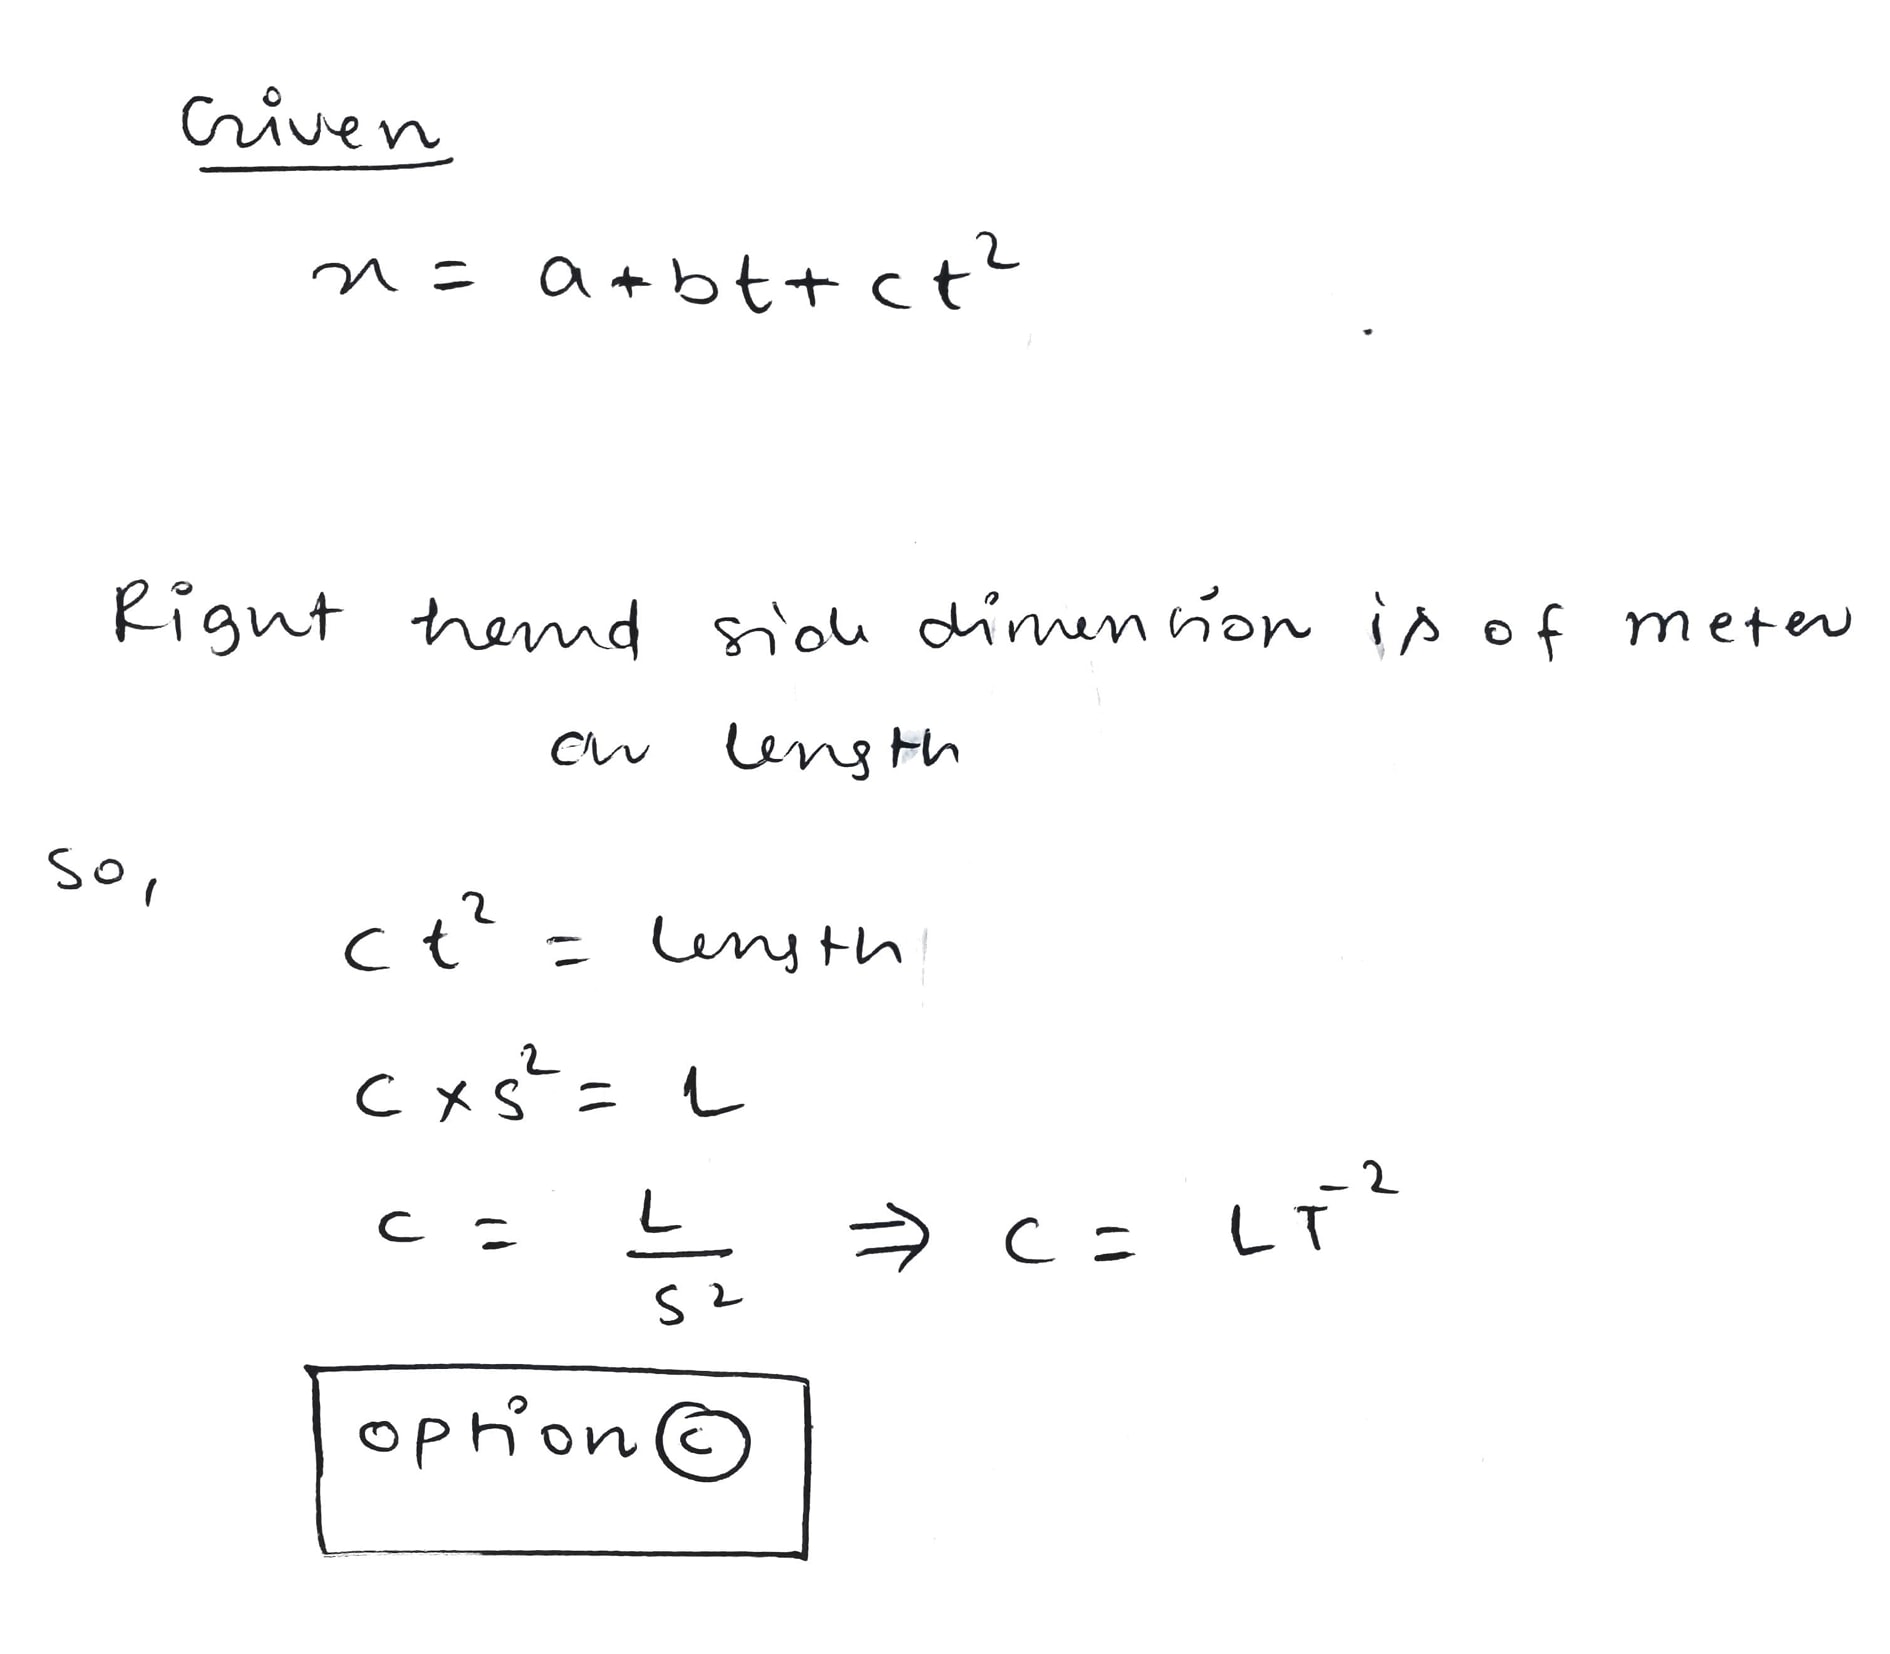 Given
x = a+bt+ct²
Right hand side dimension is of meter
or length
so,
ct² = length
c×s² = L
c = L/s² ⇒ c = LT⁻²
option ⓒ